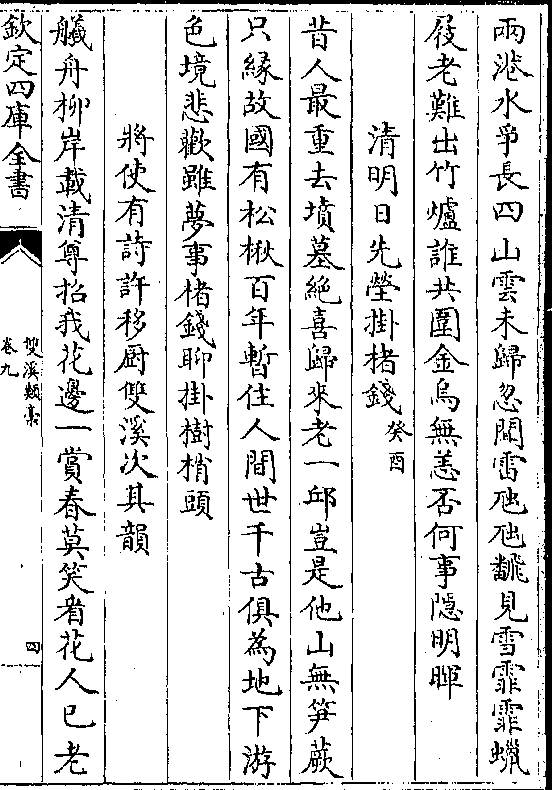 兩港水爭長四山雲未歸忽聞雷虺虺飜見雪霏霏蠟
屐老難出竹爐誰共圍金烏無恙否何事隱明暉
清明日先塋掛楮錢癸酉
昔人最重去墳墓絶喜歸來老一邱豈是他山無笋蕨
只緣故國有松楸百年暫住人間世千古俱為地下游
色境悲歡雖夢事楮錢聊掛樹梢頭
將使有詩許移厨雙溪次其韻
艤舟柳岸載清尊招我花邊一賞春莫笑看花人已老
欽定四庫全書
雙溪類藁
卷九
四